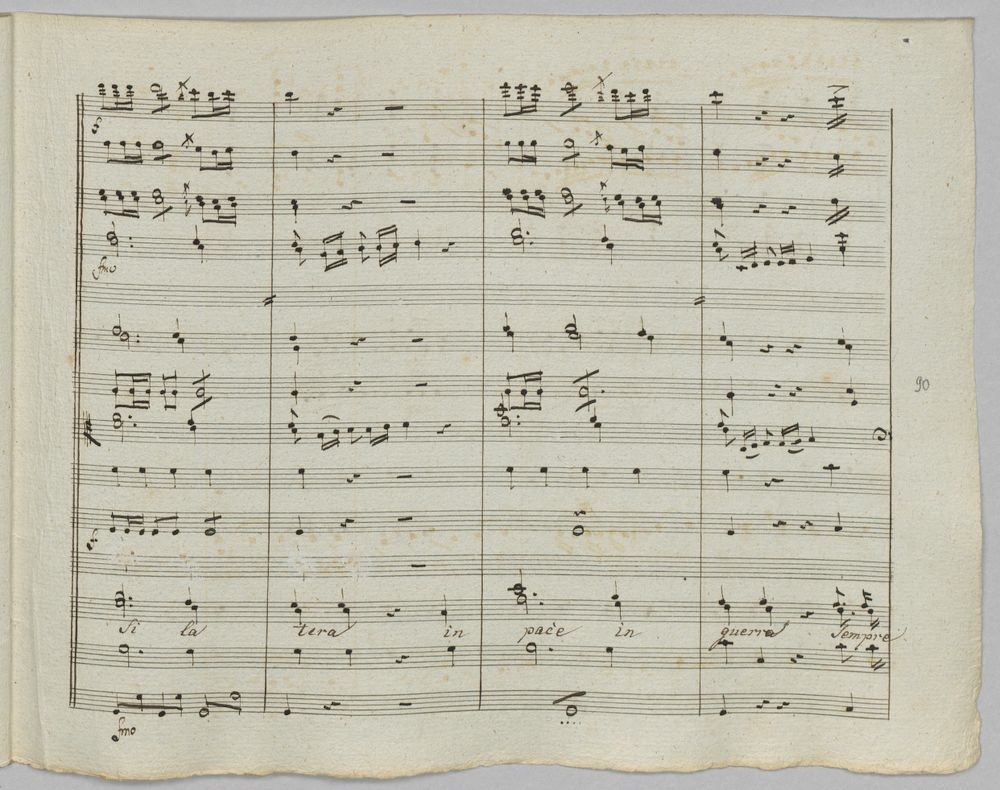 f
fmo
90
f
Si la tera in pace in guerra Sempre
fmo